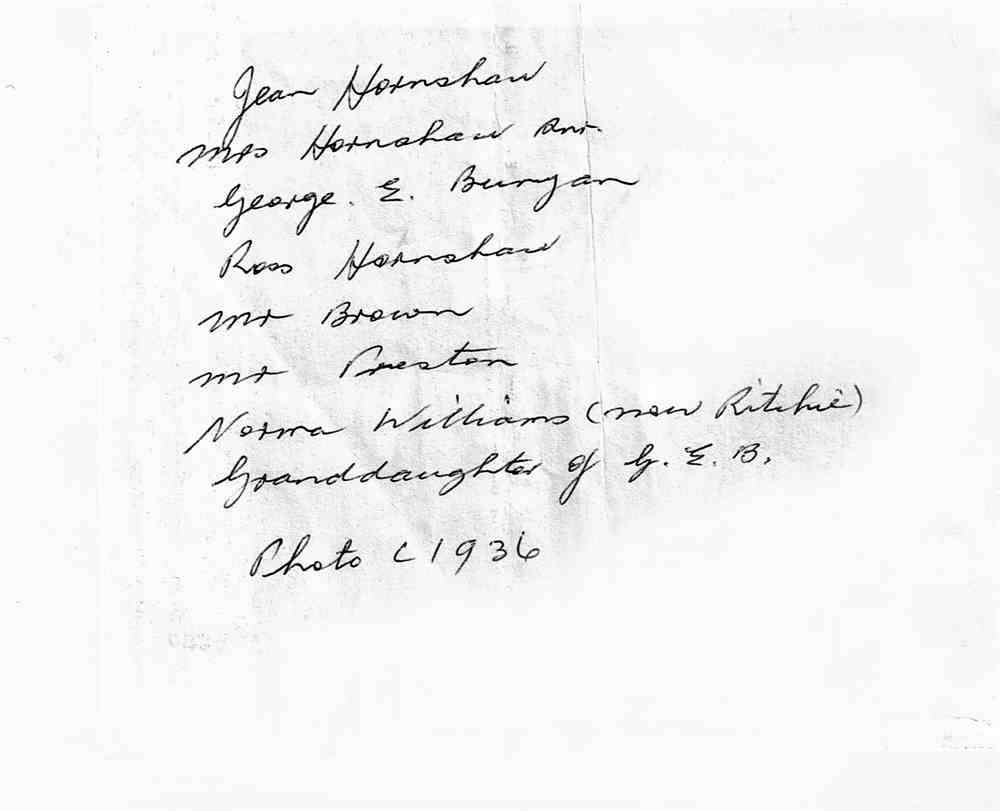 Jean Hornshaw
Mrs Hornshaw Snr.
George. E. Bunyan
Ross Hornshaw
Mr Brown
Mr Preston
Norma Williams (now Ritchie)
Granddaughter of G. E. B.
Photo C 1936